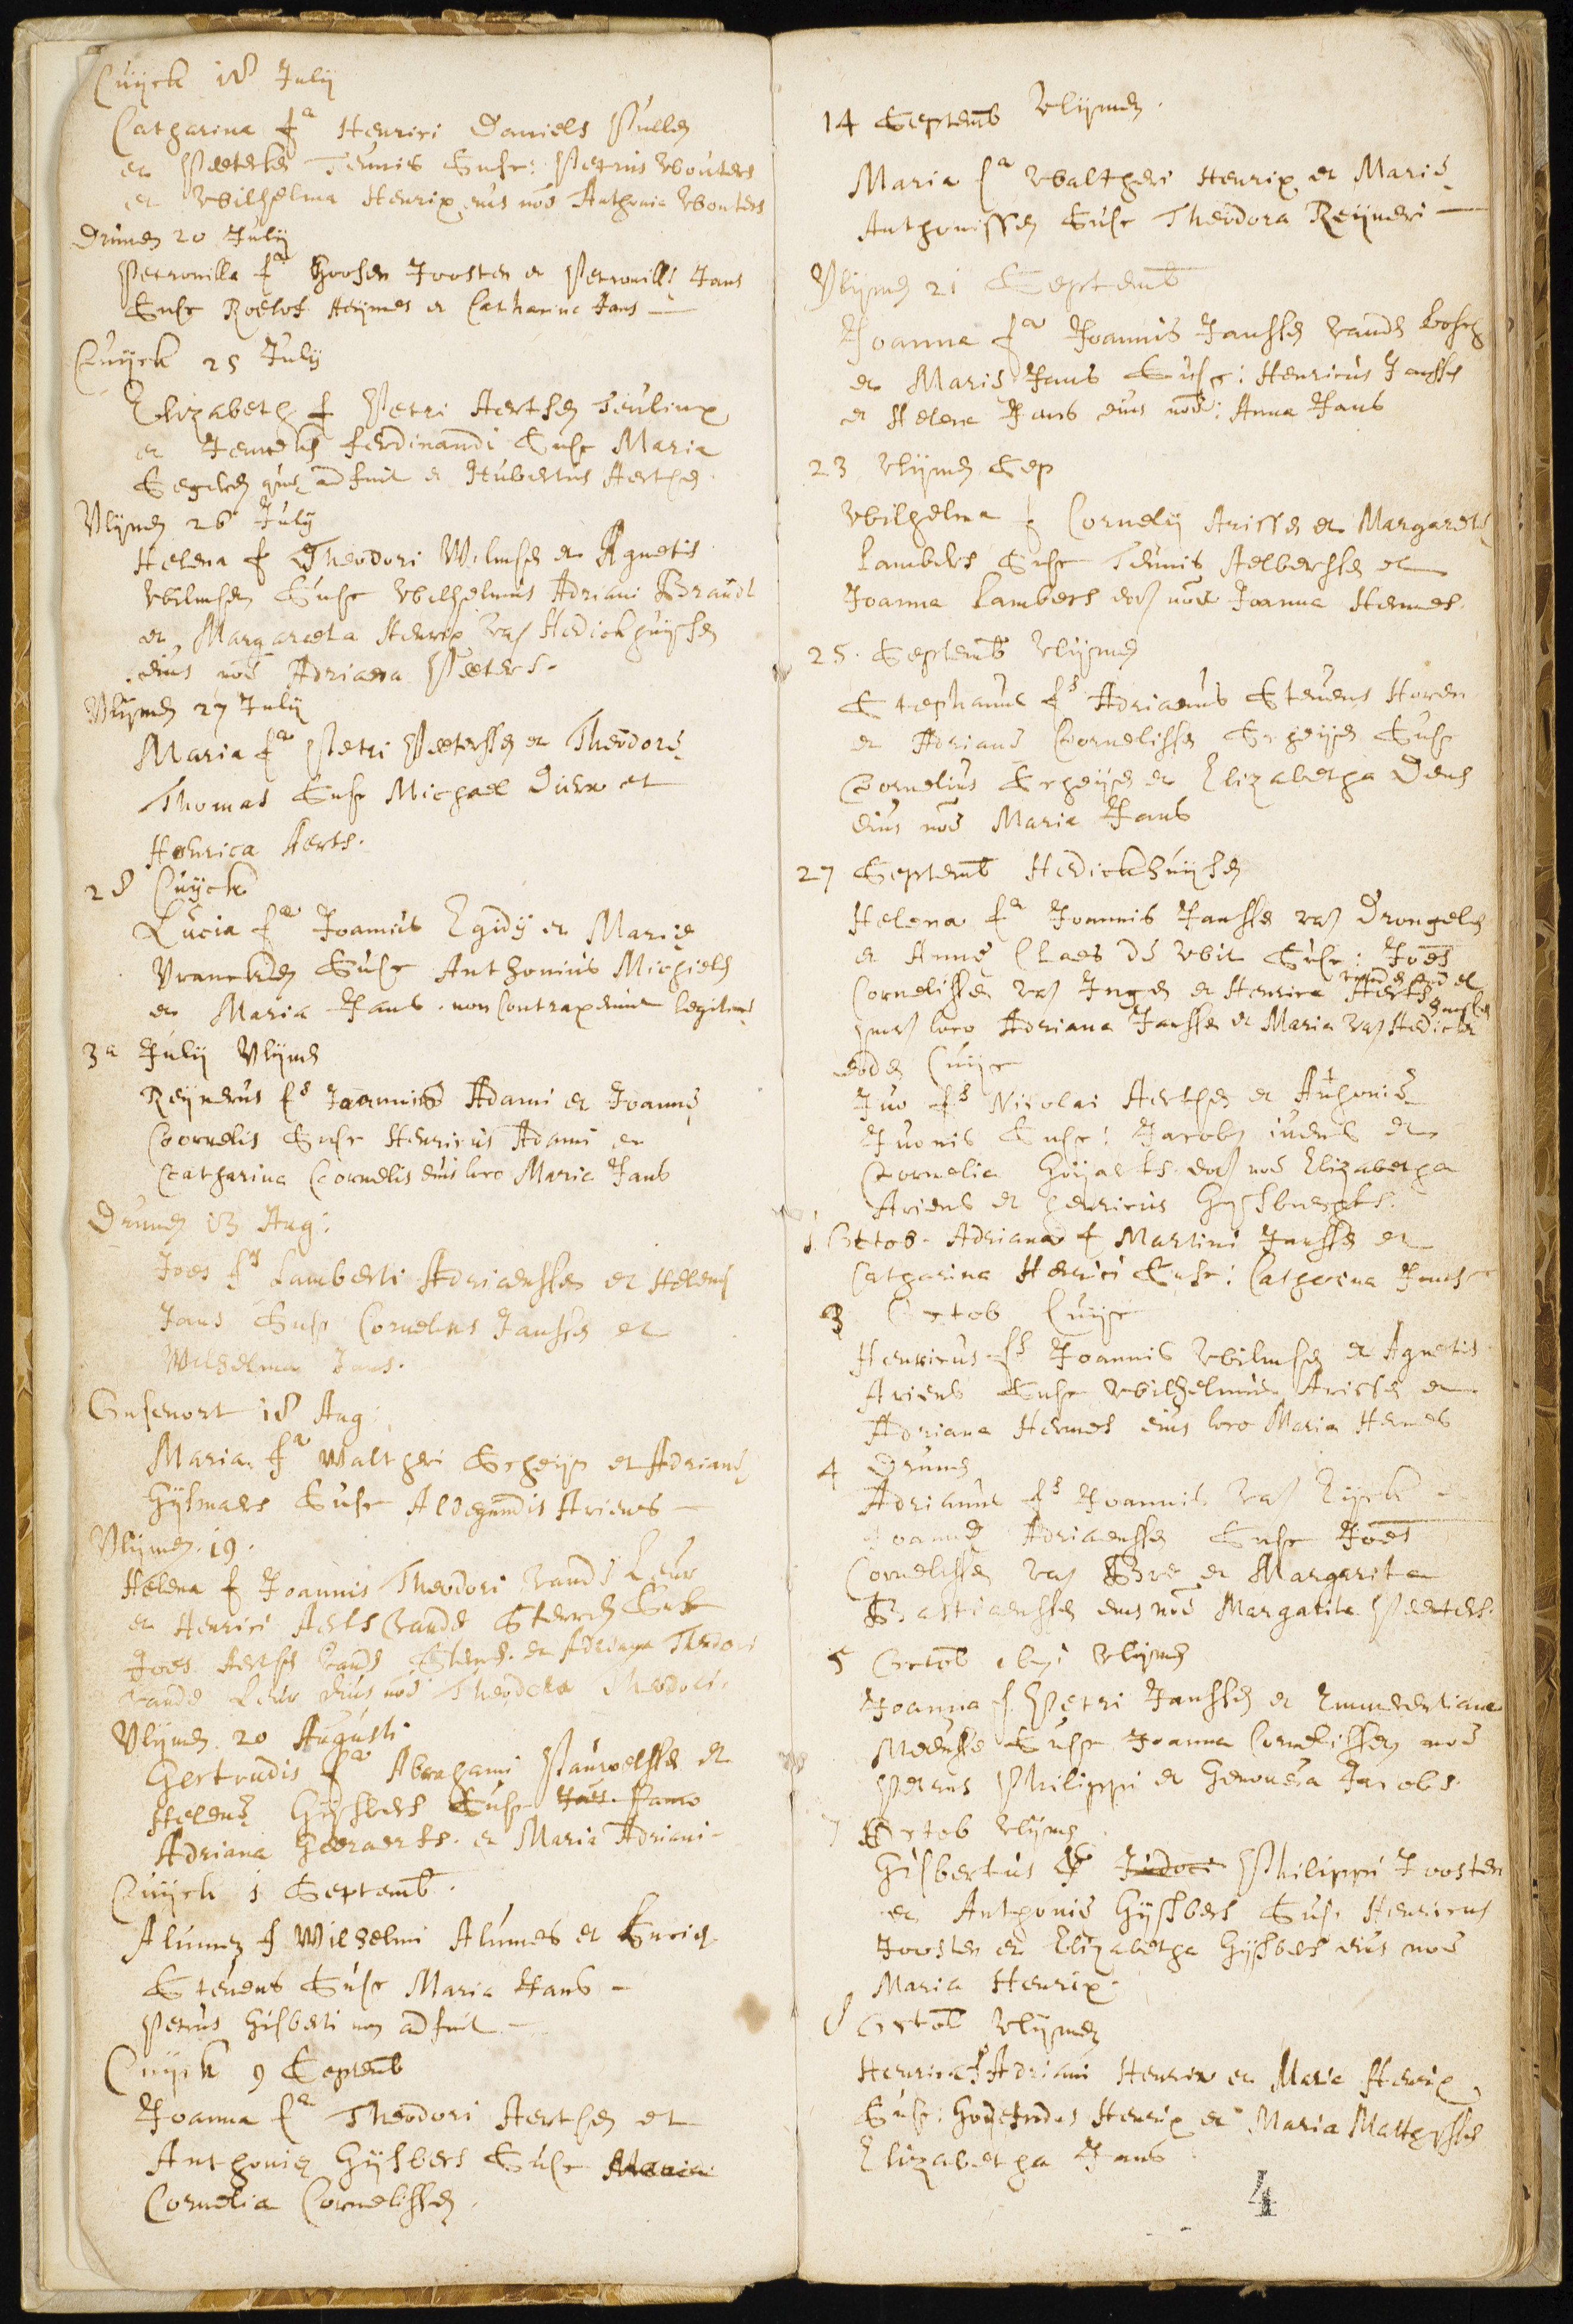 Cuÿck 18 Julÿ
Catharina fa Henrici Daniels Pulles
et Peeterke Teunis Susc: Petrus Wouters
et Wilhelma Henrix eius noe Anthonia Wouters
Drunen 20 Julÿ
Petronilla fa Goosen Joosten et Petronillę Jans
Susc Roelof Heÿmes et Catharina Jans —
Cuÿck 25 Julÿ
Elizabeth f Petri Aertsen Teulinx
et Ferdinandi Susc Maria
adfuit et Hubertus Aertsen
Vlijmen 26 Julÿ
Helena f Theodori Wilmsen et Agnetis
Wilmsen Susc Wilhelmus Adriani Brandt
et Margareta Henrix van Hedickhuÿsen
eius noe Adriana Peeters.
Vlijmen 27 Julÿ
Maria fa Petri Peetersen et Theodorę
Thomas Susc Michael Dierx et
Henrica Aerts.
28 Cuÿck
Lucia fa Joannis Egidÿ et Marię
Vrancken Susc Anthonius Michiels
et Maria Jans. non contraxerunt legitimę
Julÿ Vlijmen
Reÿnerus fs Joannis Adami et Joannę
Cornelis Susc Henricus Adami et
Catharina Cornelis eius loco Maria Jans
Drunen 13 Aug:
Joes fs Lamberti Adriaensen et Helenę
Jans Susc Cornelius Janssen et
Wilhelma Jans.
Gusenort 18 Aug:
Maria fa Waltheri Scheÿs et Adrianę
Gÿsmaers Susc Aldegundis Ariens —
Vlijmen. 19.
Helena f Joannis Theodori vande Leur
et Henrici Aerts vande Sterren Susc
Joes Aertse vande Sterre. et Adriana Theodori
vande Leur eius noe Theodora Theodori.
Vlijmen. 20 Augusti.
Gertrudis fa Abrahami Pauwelssen et
Helenę Gÿsbers Susc
Adriana Geeraerts. et Maria Adriani —
Cuÿck 1 Septemb.
f Wilhelmi Alumes et
Steuens Susc Maria Hans —
Petrus Gisberti non adfuit —
Cuÿck 9 Septemb
Joanna fa Theodori Aertsen et
Anthonię Gÿsbers Susc Maria
Cornelia Cornelissen.
14 Septemb Vlijmen.
Maria fa Waltheri Henrix et Marię
Anthonissen Susc Theodora Reÿneri —
Vlijmen 21 Septemb
Joanna fa Joannis Janssen vanden bosch
et Marię Jans Susc: Henricus Janssen
et Helena Jans eius noe: Anna Jans
23 Vlijmen Sep
Wilhelma f Cornelÿ Arissen et Margaretę
Lambers Susc Teunis Aelberssen et
Joanna Lambers eorum noe Joanna Hermes.
25. Septemb Vlijmen
Stephanus fs Adrianus Steuens Houen
et Adrianę Cornelissen Scheÿs Susc
Cornelius Scheÿs et Elizabetha Dens
eius noe Maria Jans
27 Septemb Hedickhuÿsen
Helena fa Joannis Janssen van Drongelen
et Annę Claes de Wit Susc: Joes
Cornelissen van Ingen et Henrica Aerts
loco Adriana Janssen et Maria van Hedick
eodem Cuÿc
Iuo fs Nicolai Aertsen et Anthonię
Iuonis Susc: Jacobus iuens et
Cornelia Goÿaerts. eorum noe Elizabetha
Ariens et henricus Gÿsbrechts.
1. Octob. Adriana f Martini Janssen et
Catharina Henrici Susc: Catharina Jans
3 Octob Cuÿc
Henricus fs Joannis Wilmsen et Agnetis
Ariens Susc Wilhelmus Arissen et
Adriana Hermes eius loco Maria Hermes
4 Drunen
Adrianus fs Joannis van Eÿck
Joannę Adriaenssen Susc Joes
Cornelissen van Bre et Margarita
Bastiaenssen eius noe Margarita Peeters.
5 Octob Vlijmen
Joanna f. Petri Janssen et Emmerentiana
Meeusse Susc Joanna Cornelissen noe
Petrus Philippi et Genoueua Jacobs.
7 Octob Vlijmen
Gisbertus fs Judoci Philippi Joosten
et Anthonię Gÿsbers Susc Henricus
Joosten et Elizabetha Gÿsbers eius noe
Maria Henrix.
8 Octob Vlijmen
Henrica f Adriani Henrix et Maria Henrix
Susc: Godefridus Henrix et Maria Matthÿssen
Elizabetha Jans
4